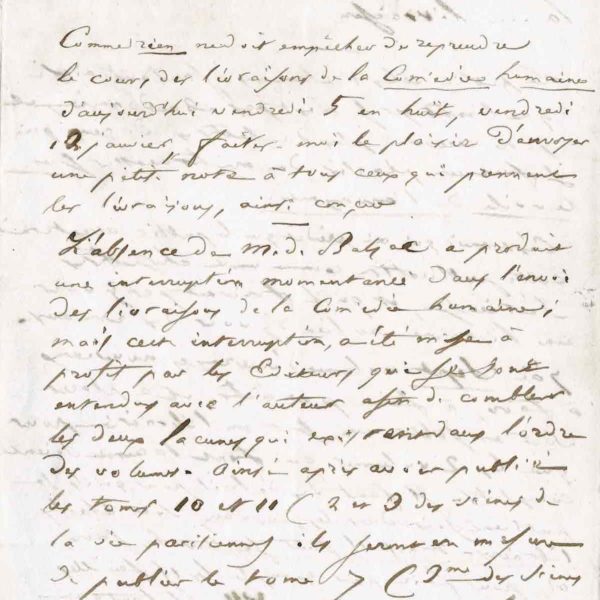 Comme rien ne doit empêcher de reprendre
le cours des livraisons de la Comédie humaine
d'aujourd'hui vendredi 5 en huit, vendredi
12 janvier, faites-moi le plaisir d'envoyer
une petite note à tous ceux qui prennent
les livraisons, ainsi conçue
L'absence de M. de Balzac a produit
une interruption momentanée dans l'envoi
des livraisons de la Comédie humaine,
mais cette interruption, a été mise à
profit par les Editeurs qui se sont
entendus avec l'auteur afin de combler
les deux lacunes qui existent dans l'ordre
des volumes. Ainsi après avoir publié
les tomes 10 et 11 (2 et 3 des scènes de
la vie parisienne) ils seront en mesure
de publier le tome 7 (3me des scènes